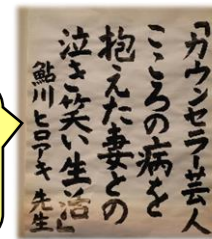 「カウンセラー芸人
こころの病を
抱えた妻との
泣き笑い生活」
鮎川ヒロアキ 先生